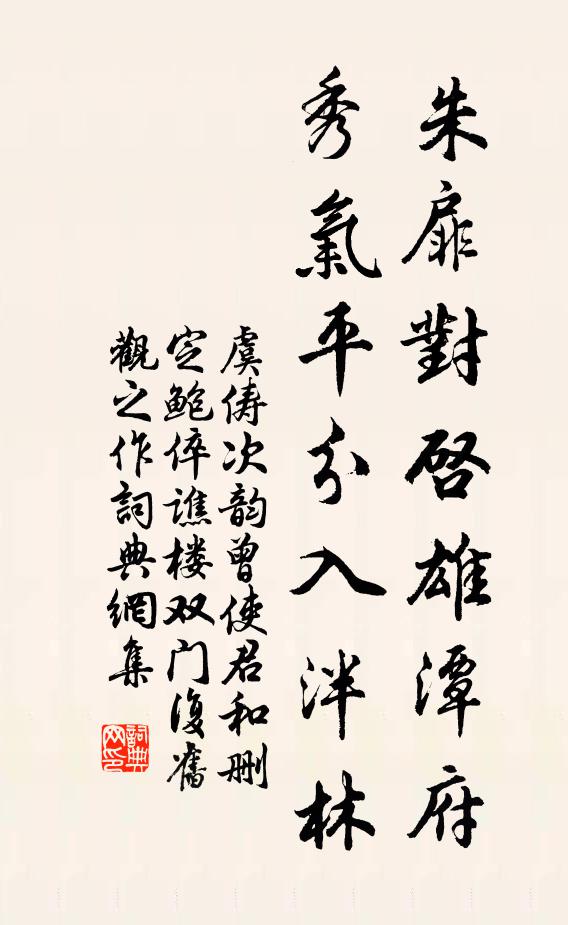 朱扉對啓雄潭府
秀氣平分入泮林
虞俦次韵曾使君和删
定鲍倅譙楼双门復舊
觀之作詞典網集
詞典網印